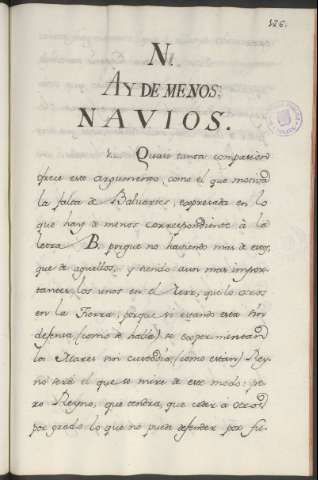 126.
N.
AY DE MENOS:
NAVIOS.
Quasi tanta compasion
ofrece este argumento, como el que motiva
la falta de Baluartes, expresada en lo
que hay de menos correspondiente à la
letra B, porque no haviendo mas de estos,
que de aquellos, y siendo aun mas impor-
tantes los unos en el Mar, que lo otros
en la Tierra, porque si estando esta sin
defensa (como se halla) se experimentan
los Mares sin custodia, (como estan) Rey-
no será el que se mire de este modo: pe-
ro Reyno, que tendra, que ceder à otros
por grado lo que no puede defender por fu-